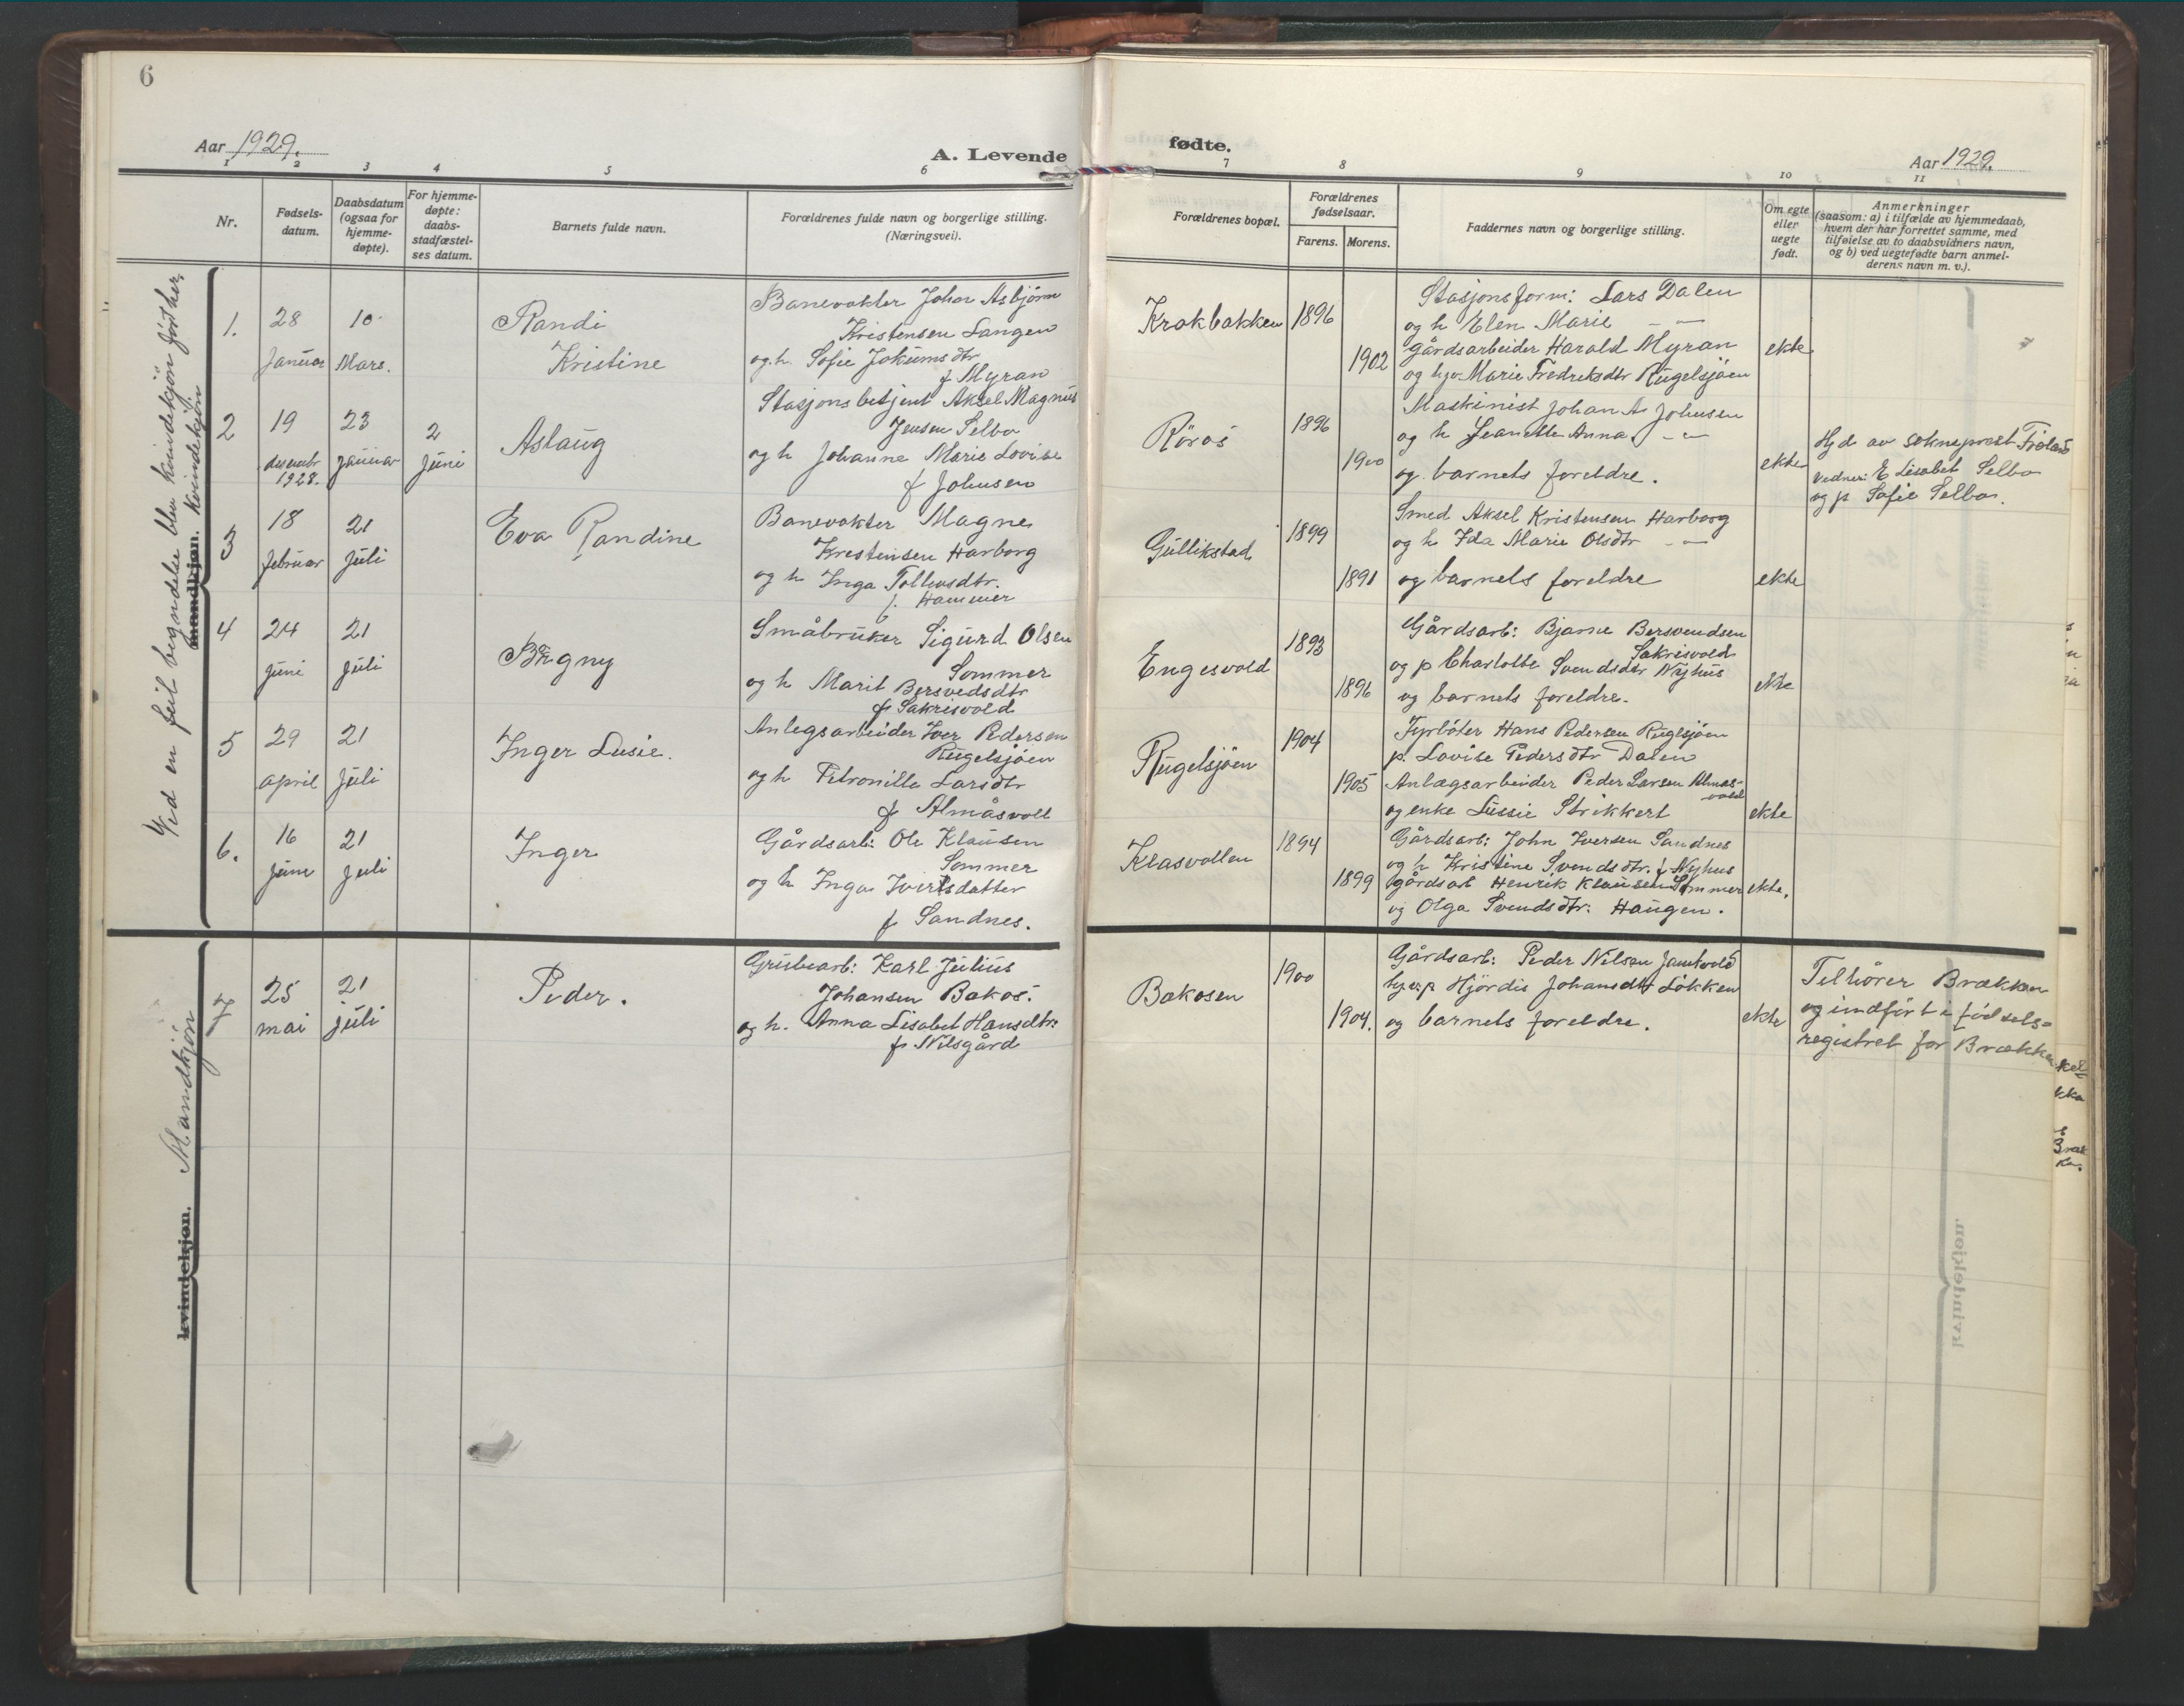 6
Aar 1929.
A. Levende
1 2 3 4 5 6
Nr.
Fødsels-
datum.
Daabsdatum
(ogsaa for
hjemme-
døpte).
For hjemme-
døpte:
daabs-
stadfæstel-
ses datum.
Barnets fulde navn.
Forældrenes fulde navn og borgerlige stilling.
(Næringsvei).
Ved en feil begyndelse blev kvindekjön fört her.
mandkjøn. Kvindekjön
1.
28
Januar
10
Mars.
Randi
Kristine
Banevokter Johan Asbjörn
Kristensen Langen
og h. Sofie Jokumsdtr
f Myran
2
19
desembr
1928.
23
januar
2
juni
Aslaug
Stasjonsbetjent Aksel Magnus
Jensen Selbo
og h Johanne Marie Lovise
f Johnsen
3
18
februar
21
juli
Eva Randine
Banevokter Magne
Kristensen Harborg
og h Inga Tollevsdtr.
f. Hammer
4
24
juni
21
juli
Bergny
Småbruker Sigurd Olsen
Sommer
og h Marit Bersvedsdtr
f Sakrisvold
5
29
april
21
juli
Inger Lusie.
Anlegsarbeider Iver Pedersen
Rugelsjöen
og h Petronille Larsdtr
f Almåsvoll
6.
16
juni
21
juli
Inger
Gårdsarb: Ole Klausen
Sommer
og h Inga Iversdatter
f Sandnes.
kvindekjøn. Mandkjön
7
25
mai
21
juli
Peder.
Grubearb: Karl Julius
Johansen Bakos.
og h. Anna Lisabet Hansdtr:
f. Nilsgård
fødte.
Aar 1929.
7 8 9 10 11
Forældrenes bopæl.
Forældrenes
fødselsaar.
Farens. Morens.
Faddernes navn og borgerlige stilling.
Om egte
eller
uegte
født.
Anmerkninger
(saasom: a) i tilfælde av hjemmedaab,
hvem der har forrettet samme, med
tilføielse av to daabsvidners navn,
og b) ved uegtefødte barn anmel-
derens navn m. v.).
Krokbakken
1896
1902
Stasjonsform: Lars Dalen
og h Elen Marie — " —
gårdsarbeider Harald Myran
og hgv. Marie Fredriksdtr Rugelsjöen
ekte
Röros
1896
1900
Maskinist Johan A Johnsen
og h Jeanette Anna — " —
og barnets foreldre.
ekte
Hjd av sokneprest Fröland
Vedner: E Lisabet Selbo
og p Sofie Selbo.
Gullikstad
1899
1891
Smed Aksel Kristensen Harborg
og h Ida Marie Olsdtr — " —
og barnets foreldre
ekte
Engesvold
1893
1896
Gårdsarb: Bjarne Bersvendsen
Sakrisvold
og p Charlotte Svendsdtr Nyhus
og barnets foreldre.
ekte
Rugelsjöen
1904
1905
Fyrböter Hans Pedersen Rugelsjöen
p. Lovise Pedersdtr Dalen
Anlægsarbeider Peder Larsen Almås-
vold
og enke Lussie Strikkert
ekte
Klasvollen
1894
1899
Gårdsarb: John Iversen Sandnes
og h Kristine Svendsdtr. f Nyhus
gårdsarb Henrik Klausen Sommer
og Olga Svendsdtr: Haugen.
ekte.
Bakosen
1900
1904.
Gårdsarb: Peder Nilsen Jamtvold
Hjördis Johansdtr Lökken
og barnets foreldre.
ekte
Tilhörer Brækken
og indfört i födsels-
registret for Brækken